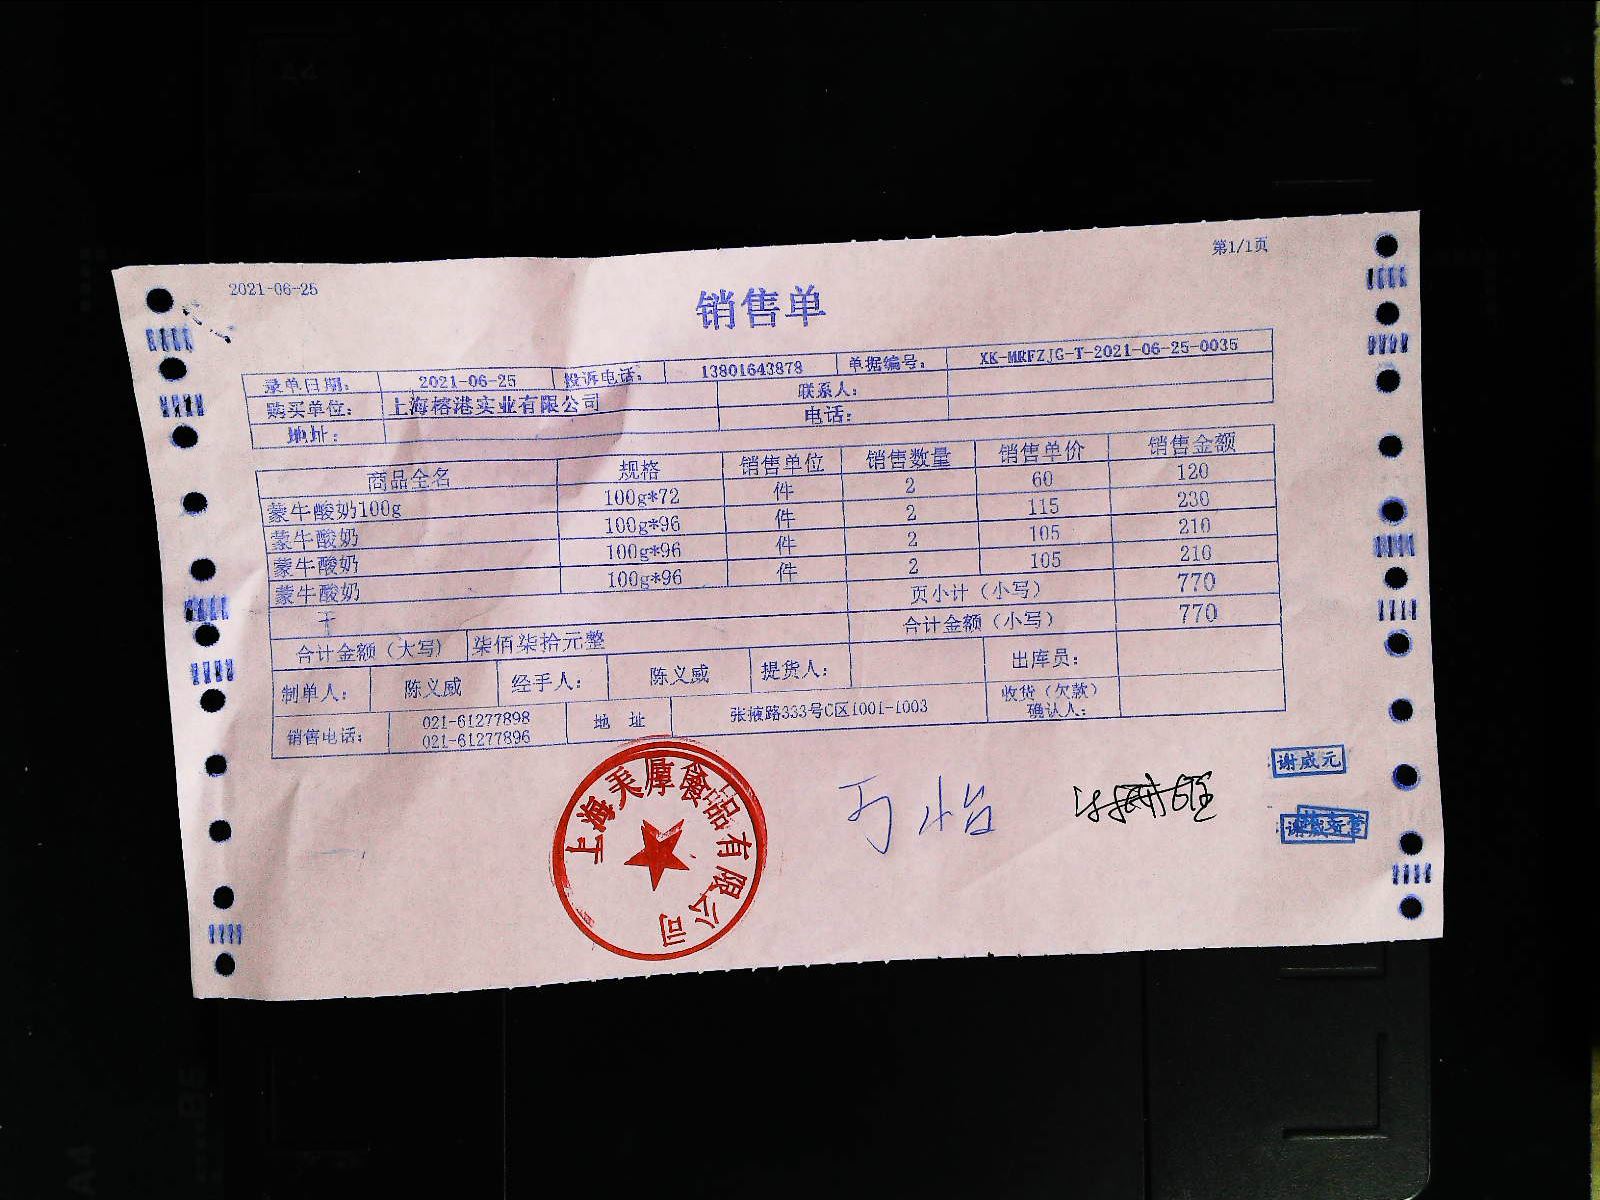 第1/1页
2021-06-25
销售单
录单日期: 2021-06-25 投诉电话: 13801643878 单据编号: XK-MRFZJG-T-2021-06-25-0035
购买单位: 上海榕港实业有限公司 联系人:
地址: 电话:
商品全名 规格 销售单位 销售数量 销售单价 销售金额
蒙牛酸奶100g 100g*72 件 2 60 120
蒙牛酸奶 100g*96 件 2 115 230
蒙牛酸奶 100g*96 件 2 105 210
蒙牛酸奶 100g*96 件 2 105 210
页小计（小写） 770
合计金额（大写） 柒佰柒拾元整 合计金额（小写） 770
制单人: 陈义威 经手人: 陈义威 提货人: 出库员:
销售电话: 021-61277898 021-61277896 地 址 张掖路333号C区1001-1003 收货（欠款）确认人:
谢威元
上海 食品有限公司